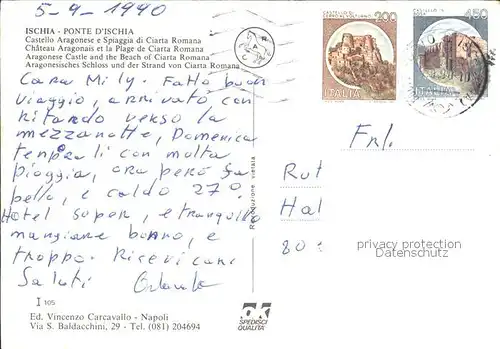 5-9-1990
ISCHIA - PONTE D'ISCHIA
Castello Aragonese e Spiaggia di Ciarta Romana
Château Aragonais et la Plage de Ciarta Romana
Aragonese Castle and the Beach of Ciarta Romana
Aragonesisches Schloss und der Strand von Ciarta Romana
Cara Mily. Fatto buon
viaggio, arrivato con
Ritardo verso la
mezzanotte, Domenica
temporali con molta
pioggia, ora però fa
bello, e caldo 27°
Hotel super, e tranquillo
mangiare buono, e
troppo. Ricevi cari
Saluti Orlando
I 105
Ed. Vincenzo Carcavallo - Napoli
Via S. Baldacchini, 29 - Tel. (081) 204694
Riproduzione vietata
OK
SPEDISCI
QUALITA'
200
ITALIA
450
ITALIA
Frl.
Rut
Hal
80
privacy protection
Datenschutz